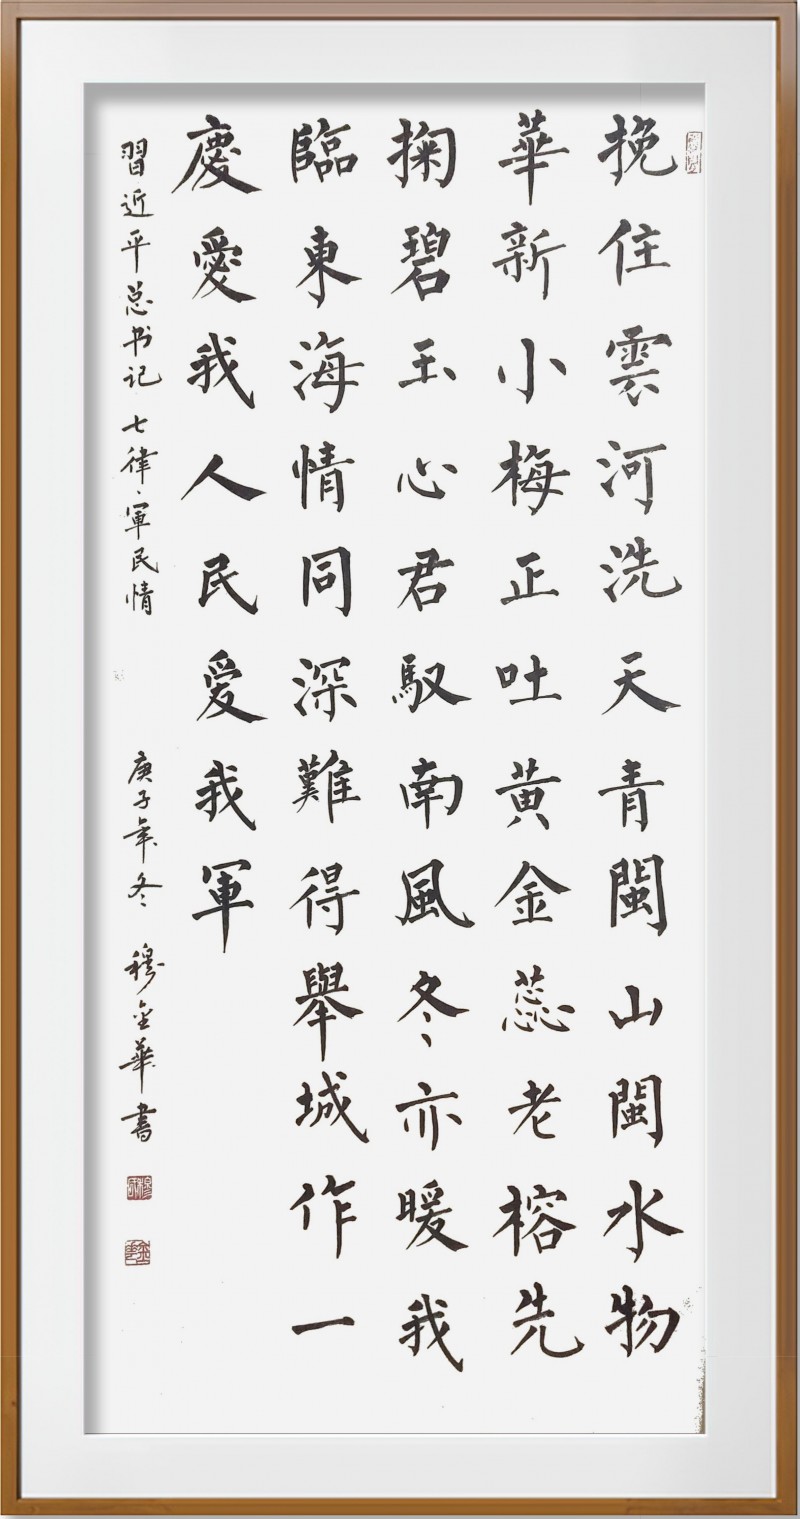 挽住雲河洗天青閩山閩水物
華新小梅正吐黄金蕊老榕先
掬碧玉心君馭南風冬亦暖我
臨東海情同深難得舉城作一
慶愛我人民爱我軍
習近平总书记七律、軍民情
庚子年冬 穆金華書